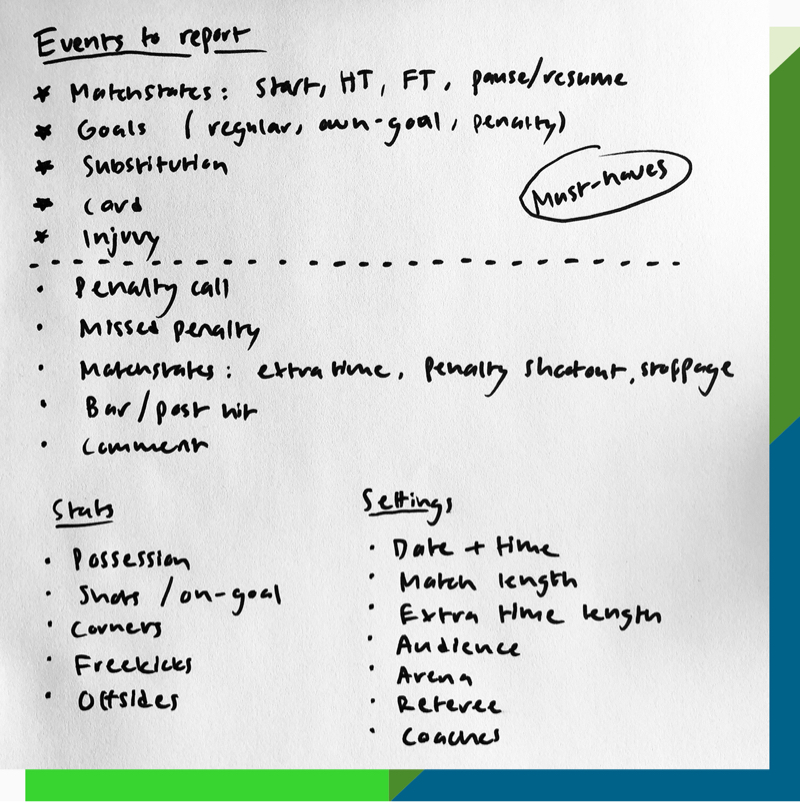 Events to report
* Matchstates: Start, HT, FT, pause/resume
* Goals (regular, own-goal, penalty)
* Substitution
Must-haves
* Card
* Injury
· Penalty call
· Missed penalty
· Matchstates: extra time, Penalty shootout, stoppage
· Bar/post hit
· Comment
Stats
· Possession
· Shots / on-goal
· Corners
· Freekicks
· Offsides
Settings
· Date + time
· Match length
· Extra time length
· Audience
· Arena
· Referee
· Coaches